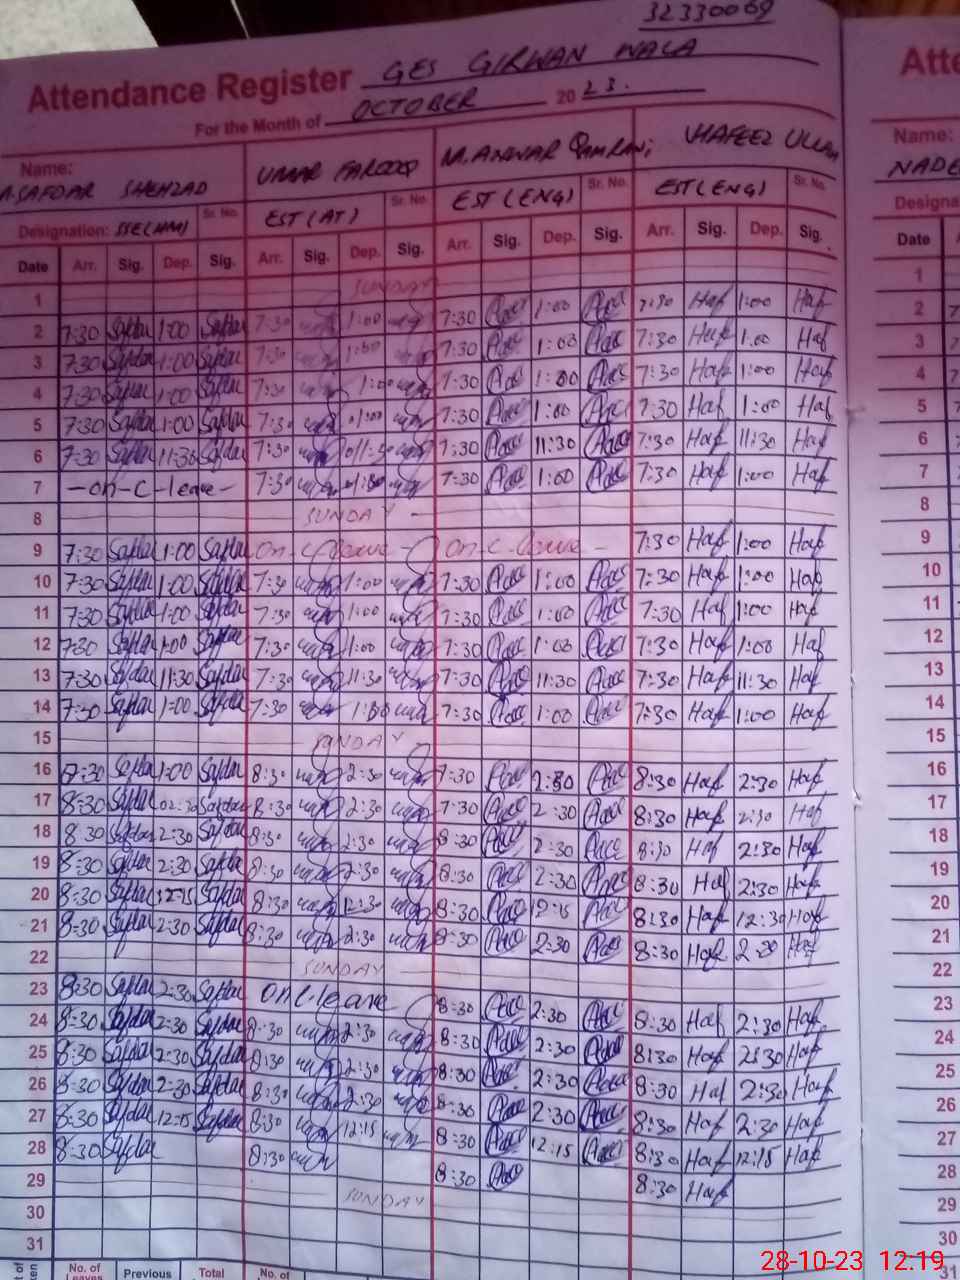 32330069
Attendance Register GES GIRWAN WALA
For the Month of OCTOBER 20 23.
Name: SAFDAR SHEHZAD UMAR FAROOQ M. ANWAR HAFEEZ ULLAH
Designation: SSE(HM) Sr. No. EST (AT) Sr. No. EST (ENG) Sr. No. EST(ENG) Sr. No.
Date Arr. Sig. Dep. Sig. Arr. Sig. Dep. Sig. Arr. Sig. Dep. Sig. Arr. Sig. Dep. Sig.
1 SUNDAY
2 7:30 Safdar 1:00 Safdar 7:30 1:00 7:30 1:00 7:30 Haf 1:00 Haf
3 7:30 Safdar 1:00 Safdar 7:30 1:00 7:30 1:00 7:30 Haf 1:00 Haf
4 7:30 Safdar 1:00 Safdar 7:30 1:00 7:30 1:00 7:30 Haf 1:00 Haf
5 7:30 Safdar 1:00 Safdar 7:30 1:00 7:30 1:00 7:30 Haf 1:00 Haf
6 7:30 Safdar 11:30 Safdar 7:30 11:30 7:30 11:30 7:30 Haf 11:30 Haf
7 - on - c - leave - 7:30 1:00 7:30 1:00 7:30 Haf 1:00 Haf
8 SUNDAY -
9 7:30 Safdar 1:00 Safdar On - C - leave - On - C - leave - 7:30 Haf 1:00 Haf
10 7:30 Safdar 1:00 Safdar 7:30 1:00 7:30 1:00 7:30 Haf 1:00 Haf
11 7:30 Safdar 1:00 Safdar 7:30 1:00 7:30 1:00 7:30 Haf 1:00 Haf
12 7:30 Safdar 1:00 Safdar 7:30 1:00 7:30 1:00 7:30 Haf 1:00 Haf
13 7:30 Safdar 11:30 Safdar 7:30 11:30 7:30 11:30 7:30 Haf 11:30 Haf
14 7:30 Safdar 1:00 Safdar 7:30 1:00 7:30 1:00 7:30 Haf 1:00 Haf
15 SUNDAY
16 7:30 Safdar 1:00 Safdar 8:30 2:30 7:30 2:30 8:30 Haf 2:30 Haf
17 8:30 Safdar 02:30 Safdar 8:30 2:30 7:30 2:30 8:30 Haf 2:30 Haf
18 8:30 Safdar 2:30 Safdar 8:30 2:30 8:30 2:30 8:30 Haf 2:30 Haf
19 8:30 Safdar 2:30 Safdar 8:30 2:30 8:30 2:30 8:30 Haf 2:30 Haf
20 8:30 Safdar 12:15 Safdar 8:30 12:30 8:30 12:15 8:30 Haf 12:30 Haf
21 8:30 Safdar 2:30 Safdar 8:30 2:30 8:30 2:30 8:30 Haf 2:30 Haf
22 SUNDAY
23 8:30 Safdar 2:30 Safdar On C leave 8:30 2:30 8:30 Haf 2:30 Haf
24 8:30 Safdar 2:30 Safdar 8:30 2:30 8:30 2:30 8:30 Haf 2:30 Haf
25 8:30 Safdar 2:30 Safdar 8:30 2:30 8:30 2:30 8:30 Haf 2:30 Haf
26 8:30 Safdar 2:30 Safdar 8:30 2:30 8:30 2:30 8:30 Haf 2:30 Haf
27 8:30 Safdar 12:15 Safdar 8:30 12:15 8:30 12:15 8:30 Haf 12:15 Haf
28 8:30 Safdar 8:30 8:30 8:30 Haf
29 SUNDAY
30
31
No. of Leaves Previous Total No. of
Atte
Name:
NADE
Designa
Date
1
2
3
4
5
6
7
8
9
10
11
12
13
14
15
16
17
18
19
20
21
22
23
24
25
26
27
28
29
30
31
28-10-23 12.19